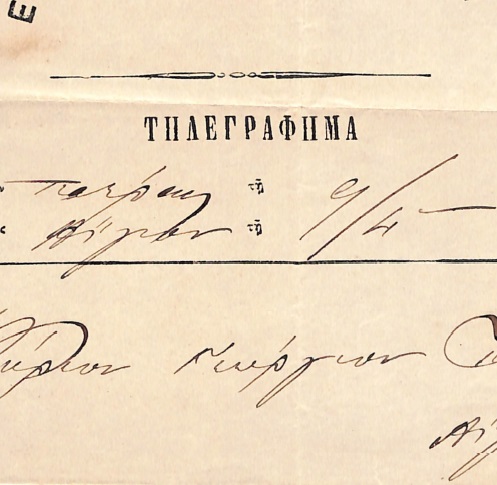 Ε
ΤΗΛΕΓΡΑΦΗΜΑ
Πατρών τῇ 9/4
Αίγιον τῇ
Κύριον Γεώργιον